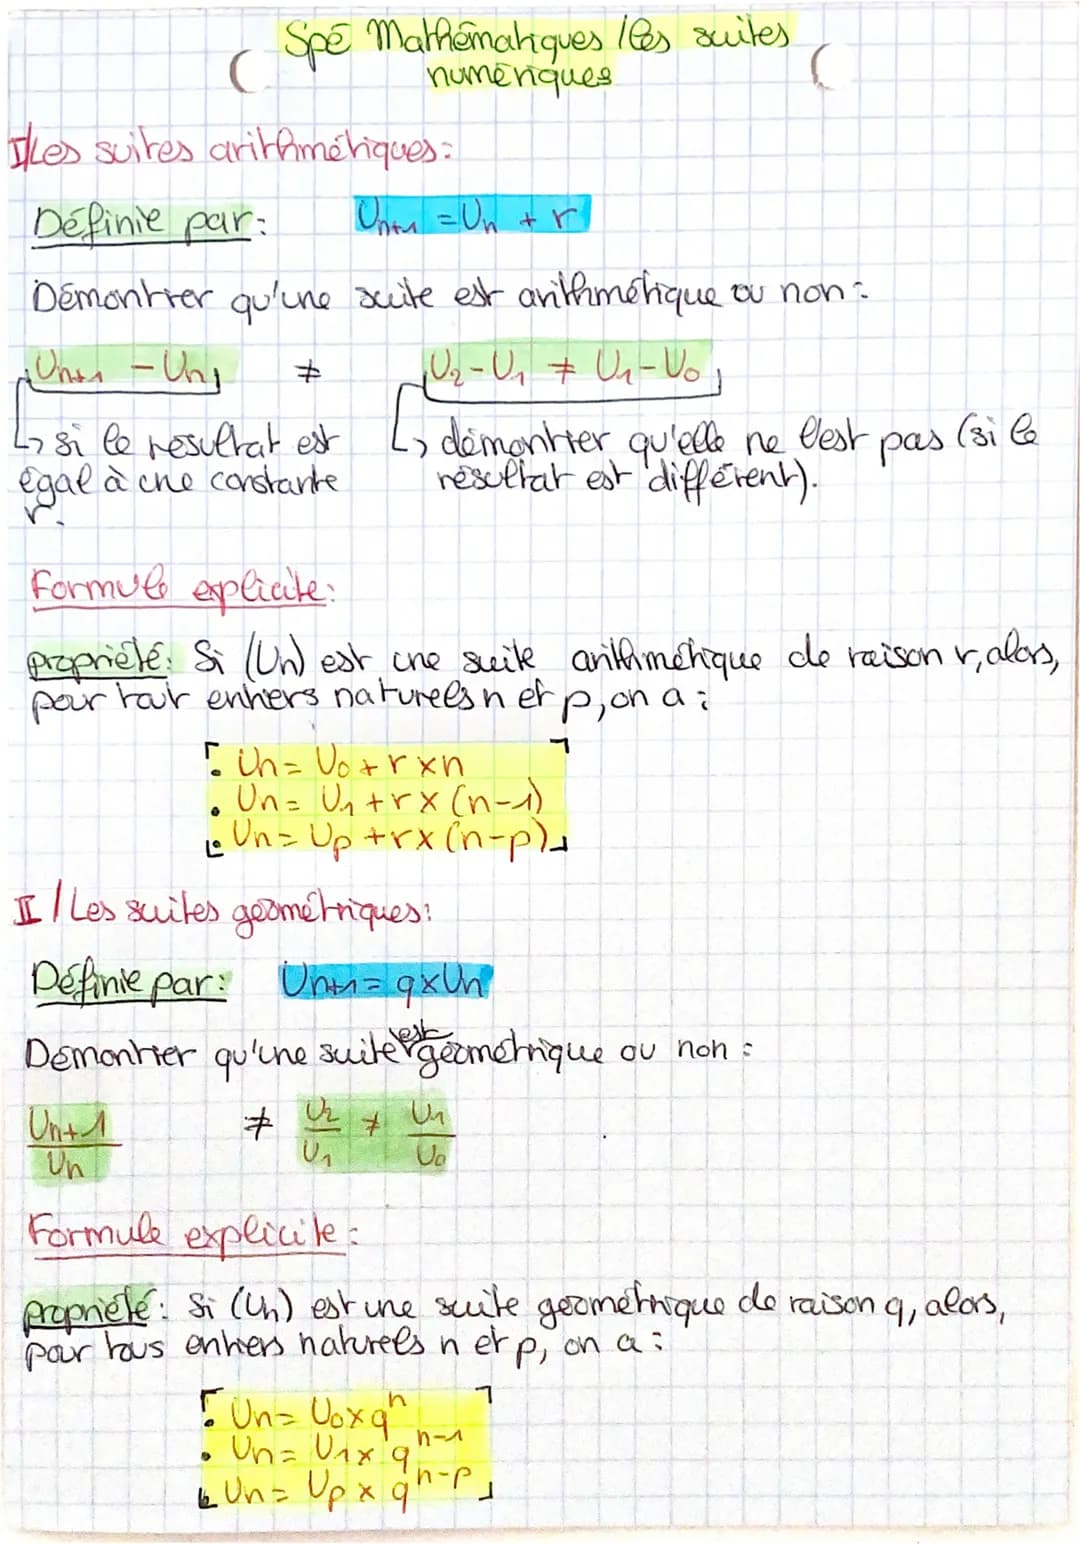 Spé Mathématiques / les suites
numériques
I/Les suites arithmétiques:
Définie par: Un+1 = Un + r
Démontrer qu'une suite est arithmétique ou non:
Un+1 - Un ≠ U2-U1 ≠ U1-U0
↳ si le resultat est ↳ démontrer qu'elle ne l'est pas (si le
égal à une constante résultat est différent).
r.
Formule explicite:
propriété: Si (Un) est une suite arithmétique de raison r, alors,
pour tout entiers naturels n et p, on a:
• Un = U0 + r × n
• Un = U1 + r × (n-1)
• Un = Up + r × (n-p)
II / Les suites géométriques:
Définie par: Un+1 = q×Un
Démontrer qu'une suite est géométrique ou non:
Un+1/Un ≠ U2/U1 ≠ U1/U0
Formule explicite:
propriété: Si (Un) est une suite géométrique de raison q, alors,
pour tous entiers naturels n et p, on a:
• Un = U0 × qⁿ
• Un = U1 × qⁿ⁻¹
• Un = Up × qⁿ⁻ᵖ